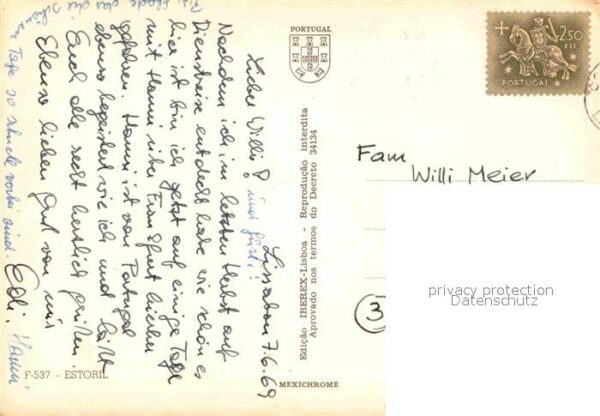 PORTUGAL
2$50
ESC.
PORTUGAL
Fam
Willi Meier
privacy protection
Datenschutz
3
Lissabon 7.6.69
Lieber Willi! und Gusti!
Nachdem ich im letzten Herbst auf
Dienstreise entdeckt habe wie schön es
hier ist bin ich jetzt auf einige Tage
mit Hanni über Frankfurt hierher
geflogen. Hanni ist von Portugal
ebenso begeistert wie ich und läßt
Euch alle recht herzlich grüßen.
Ebenso lieben Gruß von mir
Edi.
P.S. Schade das die schönen
Tage so schnell vorbei sind. Hanni
Edição IBEREX-Lisboa - Reprodução interdita
Aprovado nos termos do Decreto 34134
MEXICHROME
F-537 - ESTORIL